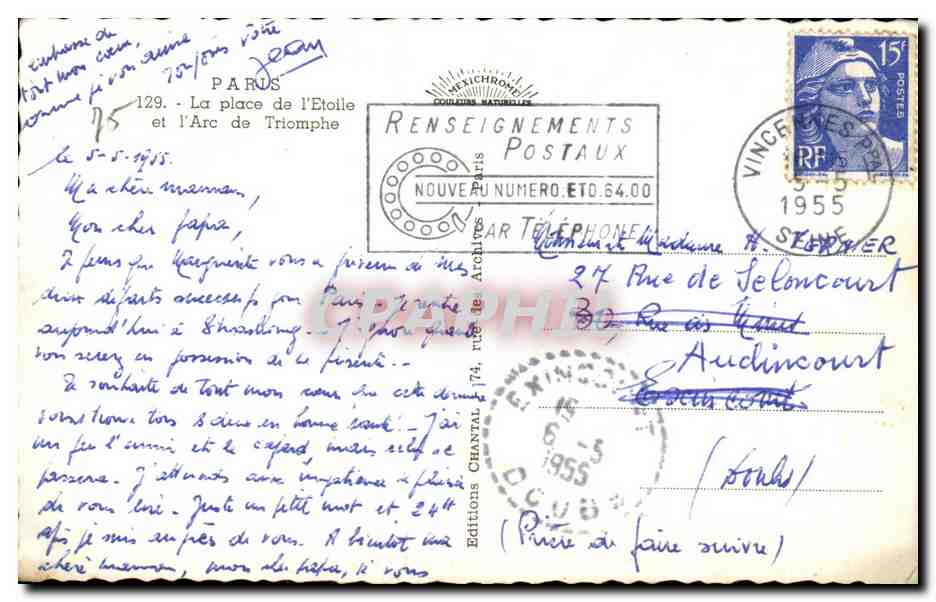 t'embrasse de
tout mon cœur,
comme je vous aime
Toujours votre
Jean
75
PARIS
129. - La place de l'Etoile
et l'Arc de Triomphe
MEXICHROME
COULEURS NATURELLES
RENSEIGNEMENTS
POSTAUX
NOUVEAU NUMERO: ETO. 64.00
PAR TÉLÉPHONE
15F
POSTES
RF
VINCENNES PPAL
5-5
1955
SEINE
le 5-5-1955.
Ma chère maman,
Mon cher papa,
Je pense que Marguerite vous a prévenu de mes
deux départs successifs pour Paris - Je rentre
aujourd'hui à Strasbourg - J'espère que
vous serez en possession de la présente. -
Je souhaite de tout mon cœur que cette dernière
vous trouve tous deux en bonne santé ! - J'ai
un peu l'ennui et le cafard, mais cela se
passera - J'attends avec impatience le plaisir
de vous lire - Juste un petit mot et 24H
après je suis auprès de vous. A bientôt ma
chère maman, mon cher papa, je vous
Editions CHANTAL 74, rue des Archives - Paris
CRAPHIL
Monsieur et Madame H.
27 Rue de Seloncourt
30, Rue
Audincourt
(Doubs)
(Prière de faire suivre)
EXINCOURT
16
6 - 5
1955
DOUBS